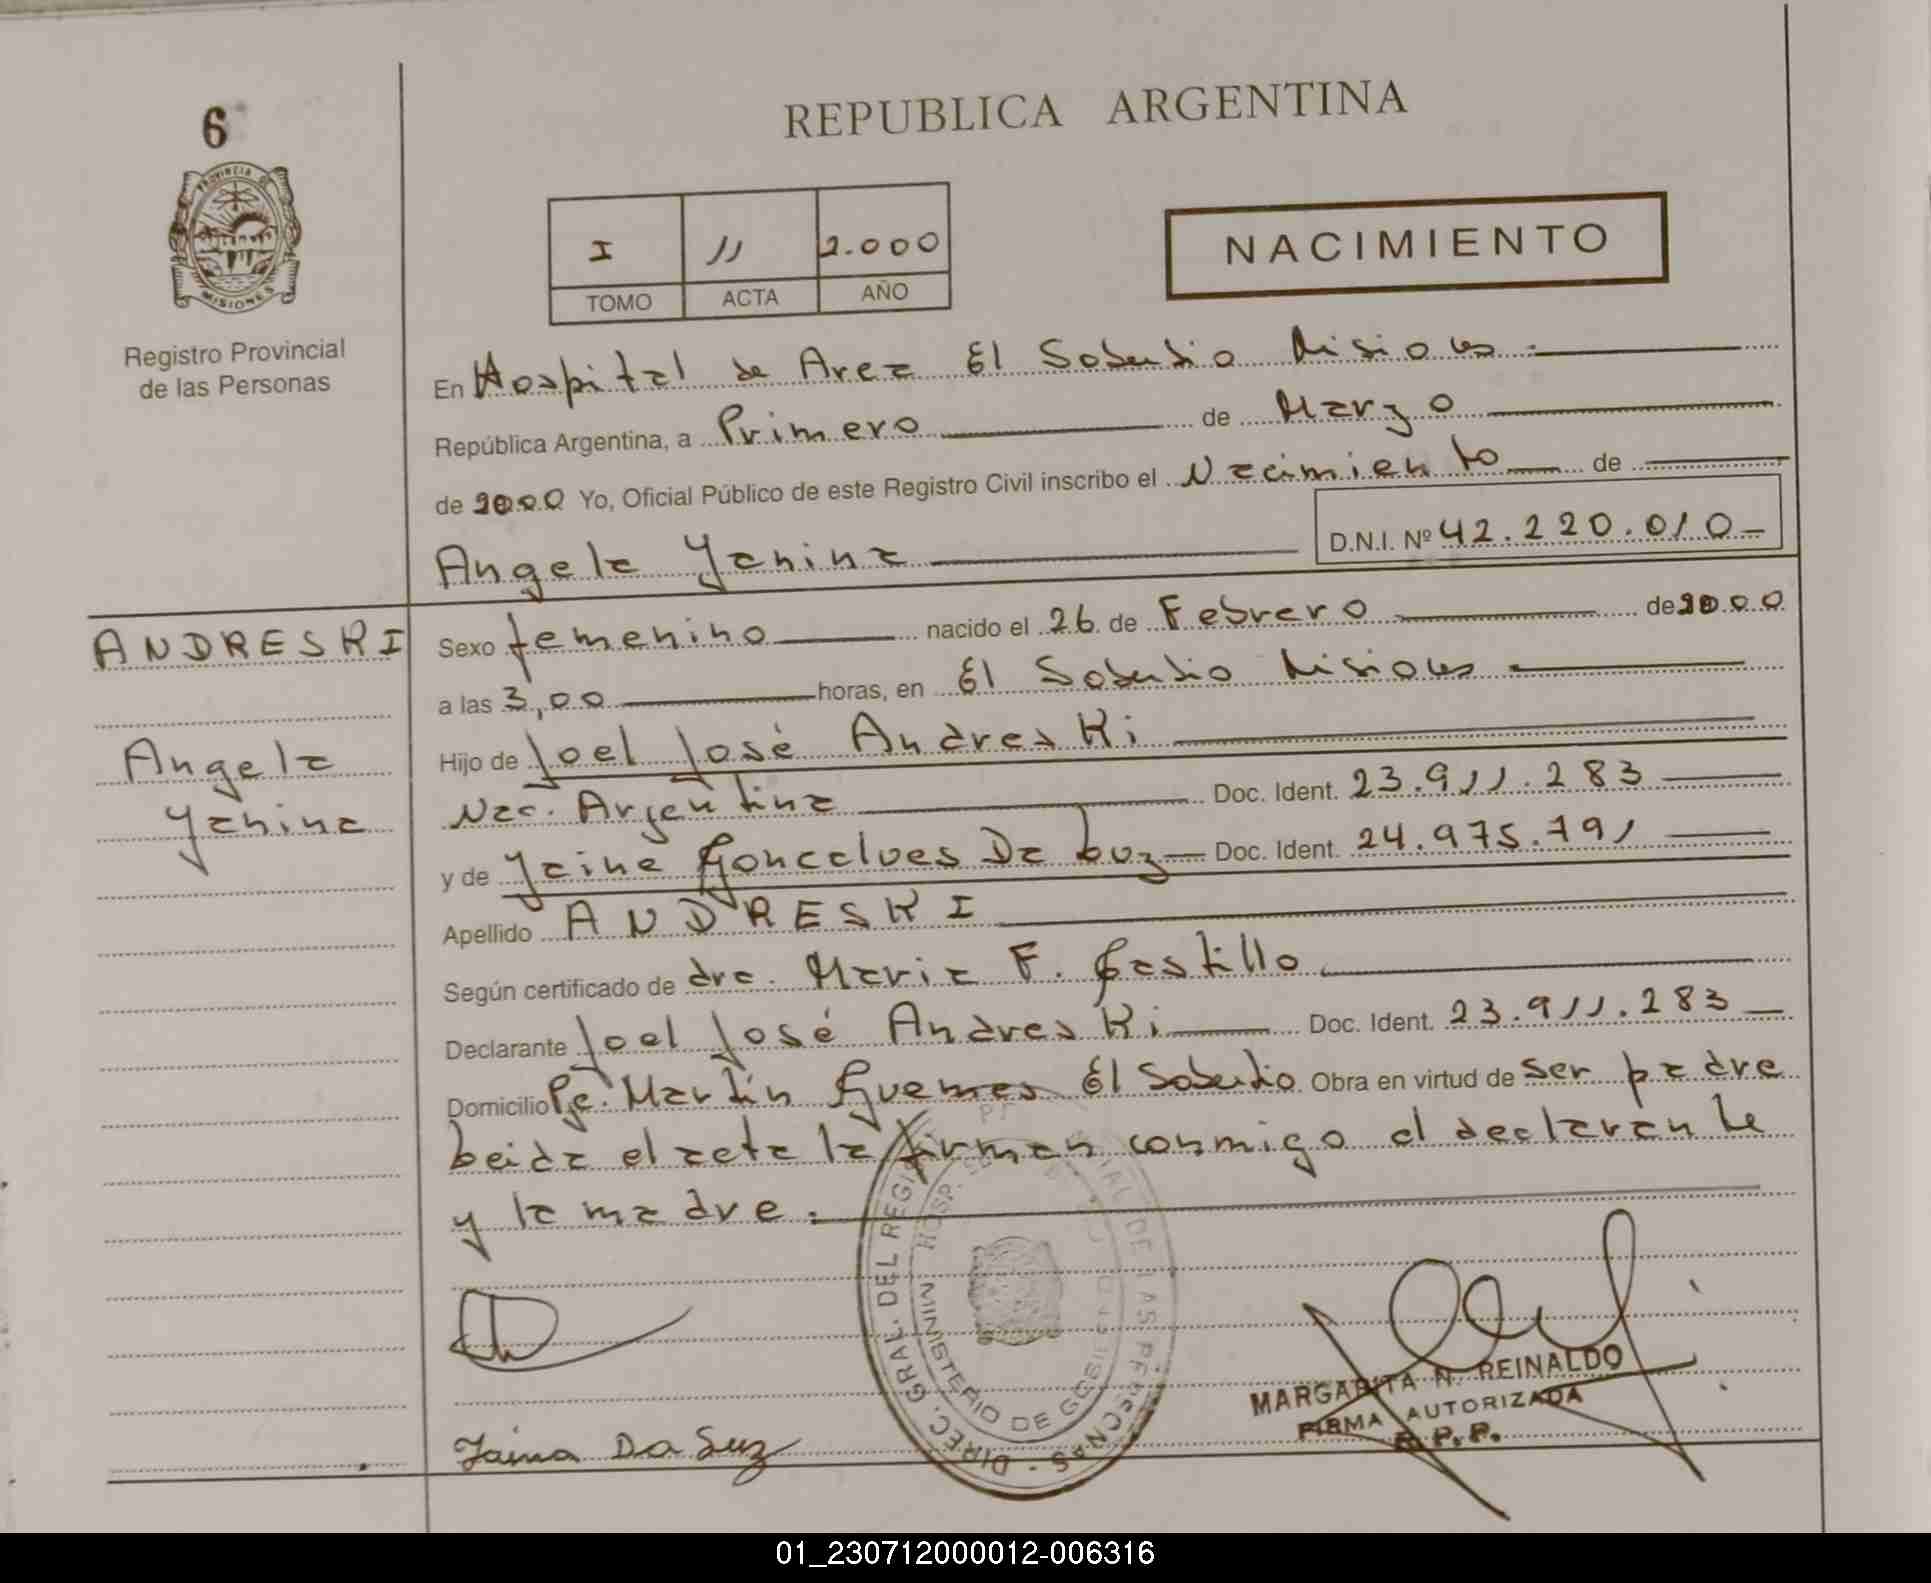 6
PROVINCIA DE
MISIONES
Registro Provincial
de las Personas
REPUBLICA ARGENTINA
I 11 2.000
TOMO ACTA AÑO
NACIMIENTO
En Hospital de Area El Soberbio Misiones.
República Argentina, a Primero de Marzo
de 2000 Yo, Oficial Público de este Registro Civil inscribo el Nacimiento de
Angela Yanina D.N.I. Nº 42.220.010
ANDRESKI
Angela
Yanina
Sexo femenino nacido el 26 de Febrero de 2000
a las 3,00 horas, en El Soberbio Misiones
Hijo de Joel José Andreski
Nac. Argentina Doc. Ident. 23.911.283
y de Yaine Goncalves Da Luz Doc. Ident. 24.975.791
Apellido ANDRESKI
Según certificado de dra. Maria F. Castillo
Declarante Joel José Andreski Doc. Ident. 23.911.283
Domicilio Pje. Martín Guemes El Soberbio Obra en virtud de ser padre
Leida el acta la firman conmigo el declarante
y la madre.
DIREC. GRAL. DEL REGIS PROVINCIAL DE LAS PERSONAS
HOSP.
MINISTERIO DE GOBIERNO
Jaina Da Luz
MARGARITA N. REINALDO
FIRMA AUTORIZADA
R. P. P.
01_230712000012-006316